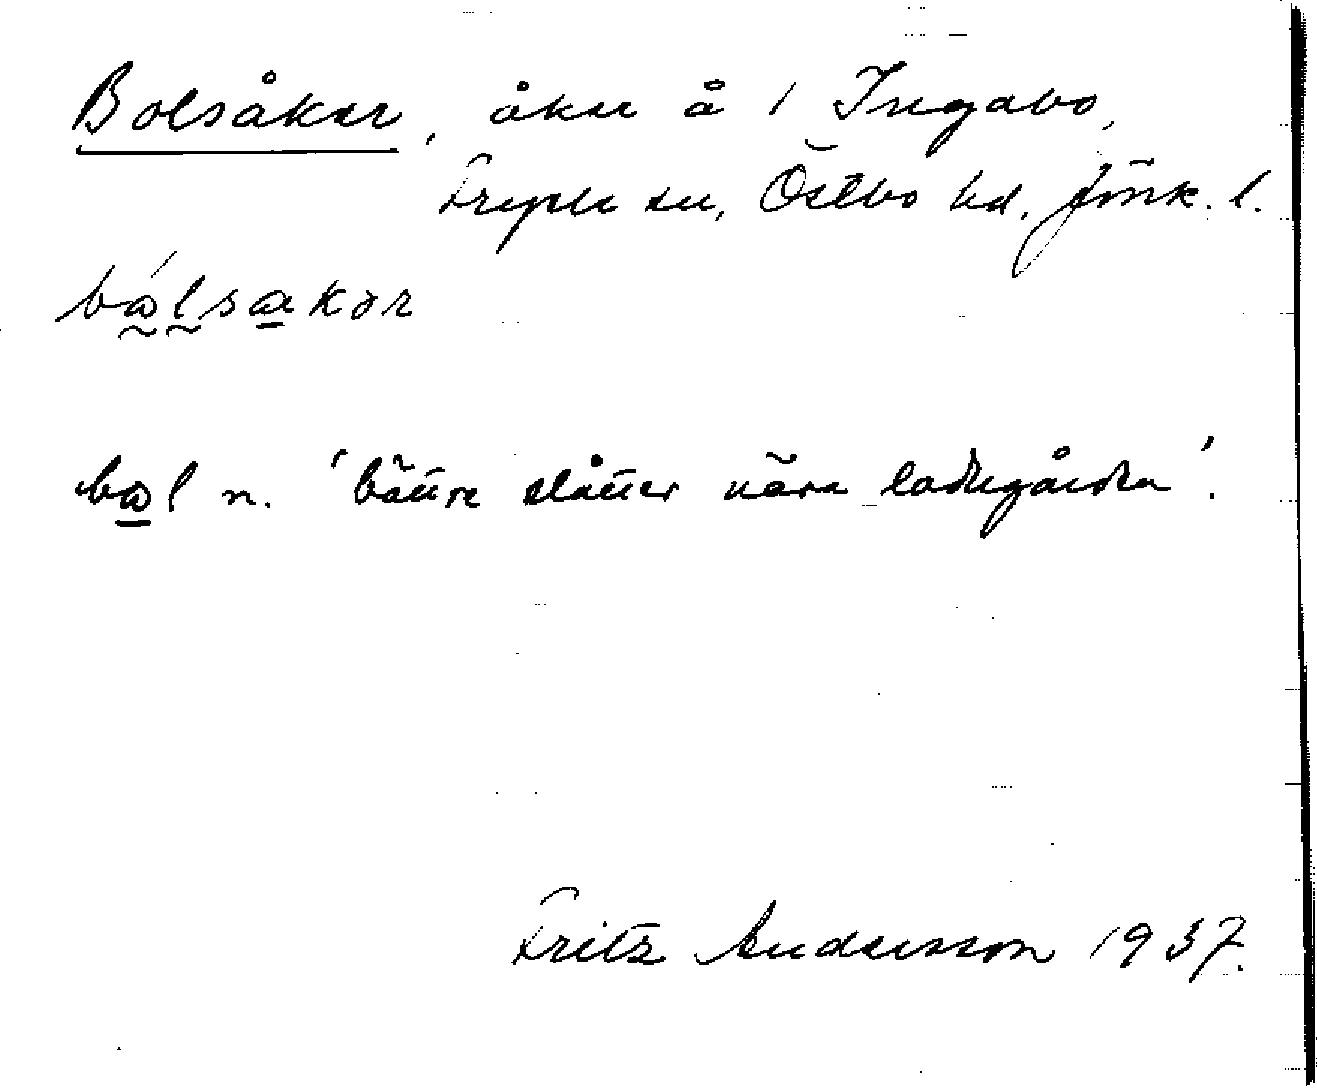 Bolsåker, åker å 1 Ingabo,
Fryele sn, Östbo hd, Jönk. l.
bålsakər
bål n. 'bättre slåtter nära ladugården'.
Fritz Andersson 1937.